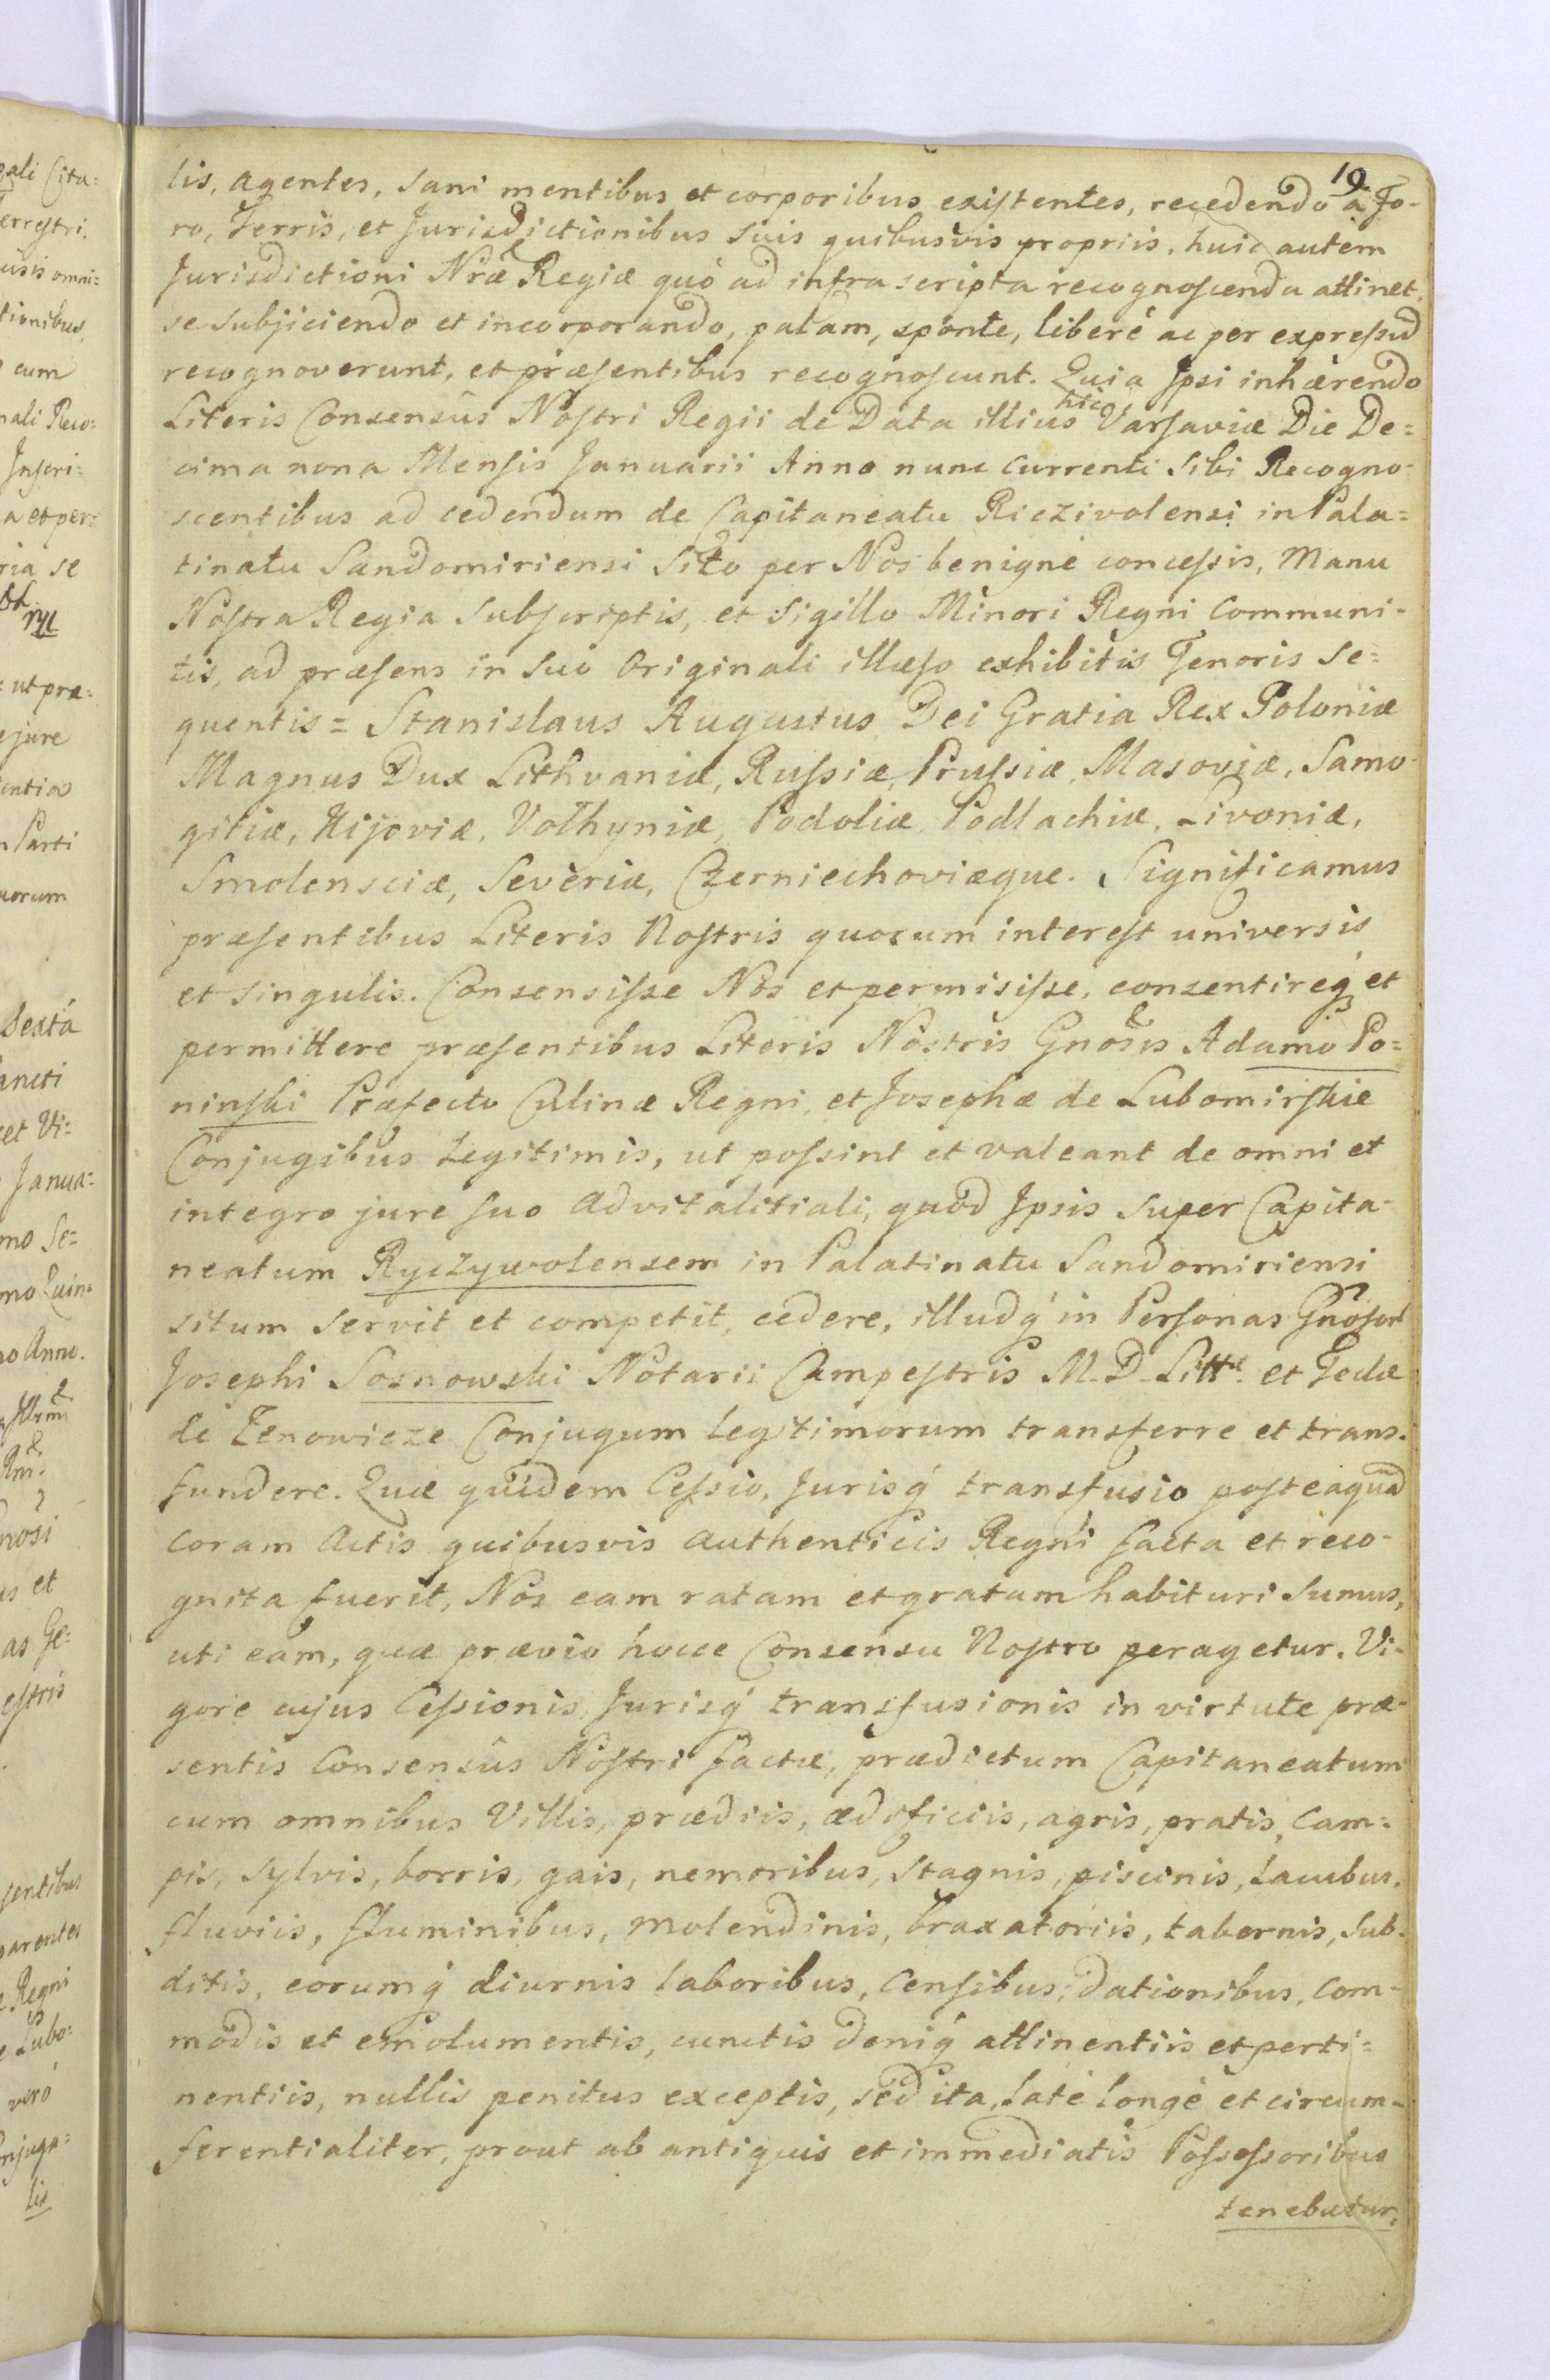 19
lis, agentes, sani mentibus et corporibus existentes, recedendo à Fo-
ro, Terris, et Jurisdictionibus suis quibusvis propriis, huic autem
Jurisdictioni Nræ Regiæ quó ad infra scripta recognoscenda attinet,
se subjiciendo et incorporando, palam, sponte, liberé ac per expressū
recognoverunt, et præsentibus recognoscunt. Quia Ipsi inhærendo
Literis Consensûs Nostri Regii de Data illius hic Varsaviæ Die De=
cima nona Mensis Januarii Anno nunc currenti sibi Recogno-
scentibus ad cedendum de Capitaneatu Riczivolensi in Pala=
tinatu Sandomiriensi sito per Nos benigne concessis, Manu
Nostra Regia subscriptis, et Sigillo Minori Regni communi-
tis, ad præsens in suo Originali illæso exhibitis Tenoris se=
quentis = Stanislaus Augustus Dei Gratia Rex Poloniæ
Magnus Dux Lithvaniæ, Russiæ, Prussiæ, Masoviæ, Samo-
gitiæ, Kijoviæ, Volhyniæ, Podoliæ, Podlachiæ, Livoniæ,
Smolensciæ, Severiæ, Czerniechoviæque. Significamus
præsentibus Literis Nostris quorum interest universis
et singulis. Consensisse Nos et permisisse, consentireq́ et
permittere præsentibus Literis Nostris Gnosis Adamo Po=
ninski Præfecto Culinæ Regni, et Josephæ de Lubomirskie
Conjugibus Legitimis, ut possint et valeant de omni et
integro jure suo advitalitiali, quód Ipsis super Capita-
neatum Ryczywolensem in Palatinatu Sandomiriensi
situm servit et competit, cedere, illudq́ in Personas Gnosorū
Josephi Sosnowski Notarii Campestris M. D. Littæ. et Teclæ
de Zenowicze Conjugum legitimorum transferre et trans-
fundere. Quæ quidem Cessio, Jurisq́ transfusio posteaquā
coram Actis quibusvis authenticis Regni facta et reco-
gnita fuerit, Nos eam ratam et gratam habituri sumus,
uti eam, quæ prævio hocce Consensu Nostro peragetur. Vi-
gore cujus Cessionis, Jurisq́ transfusionis in virtute præ-
sentis Consensûs Nostri factæ, prædictum Capitaneatum
cum omnibus Villis, prædiis, ædificiis, agris, pratis, cam=
pis, sylvis, borris, gais, nemoribus, stagnis, piscinis, lacubus,
fluviis, fluminibus, molendinis, braxatoriis, tabernis, sub-
ditis, eorumq́ diurnis laboribus, censibus, dationibus, com-
modis et emolumentis, cunctis deniq́ attinentiis et perti=
nentiis, nullis penitus exceptis, sed ita, laté longé et circum-
ferentialiter, prout ab antiquis et immediatis Possessoribus
tenebatur,